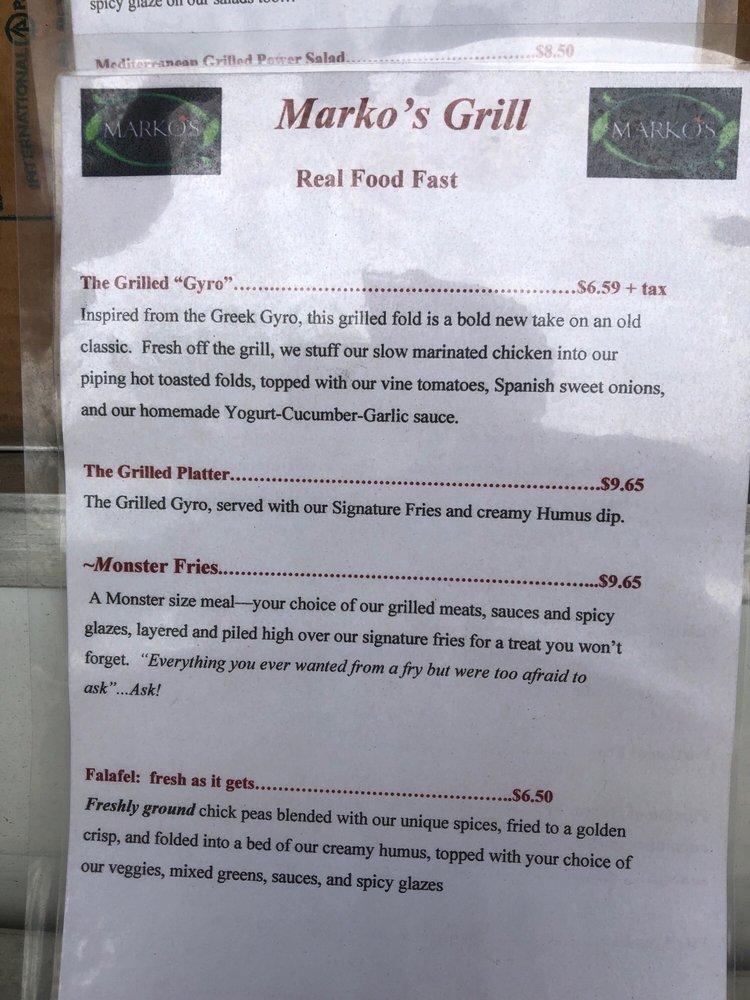 spicy glaze on our salads too...
Mediterranean Grilled Power Salad....................$8.50
INTERNATIONAL
MARKO'S
Marko's Grill
MARKO'S
Real Food Fast
The Grilled “Gyro”..................................................$6.59 + tax
Inspired from the Greek Gyro, this grilled fold is a bold new take on an old
classic. Fresh off the grill, we stuff our slow marinated chicken into our
piping hot toasted folds, topped with our vine tomatoes, Spanish sweet onions,
and our homemade Yogurt-Cucumber-Garlic sauce.
The Grilled Platter......................................................$9.65
The Grilled Gyro, served with our Signature Fries and creamy Humus dip.
~Monster Fries.......................................................$9.65
A Monster size meal—your choice of our grilled meats, sauces and spicy
glazes, layered and piled high over our signature fries for a treat you won’t
forget. “Everything you ever wanted from a fry but were too afraid to
ask”...Ask!
Falafel: fresh as it gets.....................................$6.50
Freshly ground chick peas blended with our unique spices, fried to a golden
crisp, and folded into a bed of our creamy humus, topped with your choice of
our veggies, mixed greens, sauces, and spicy glazes